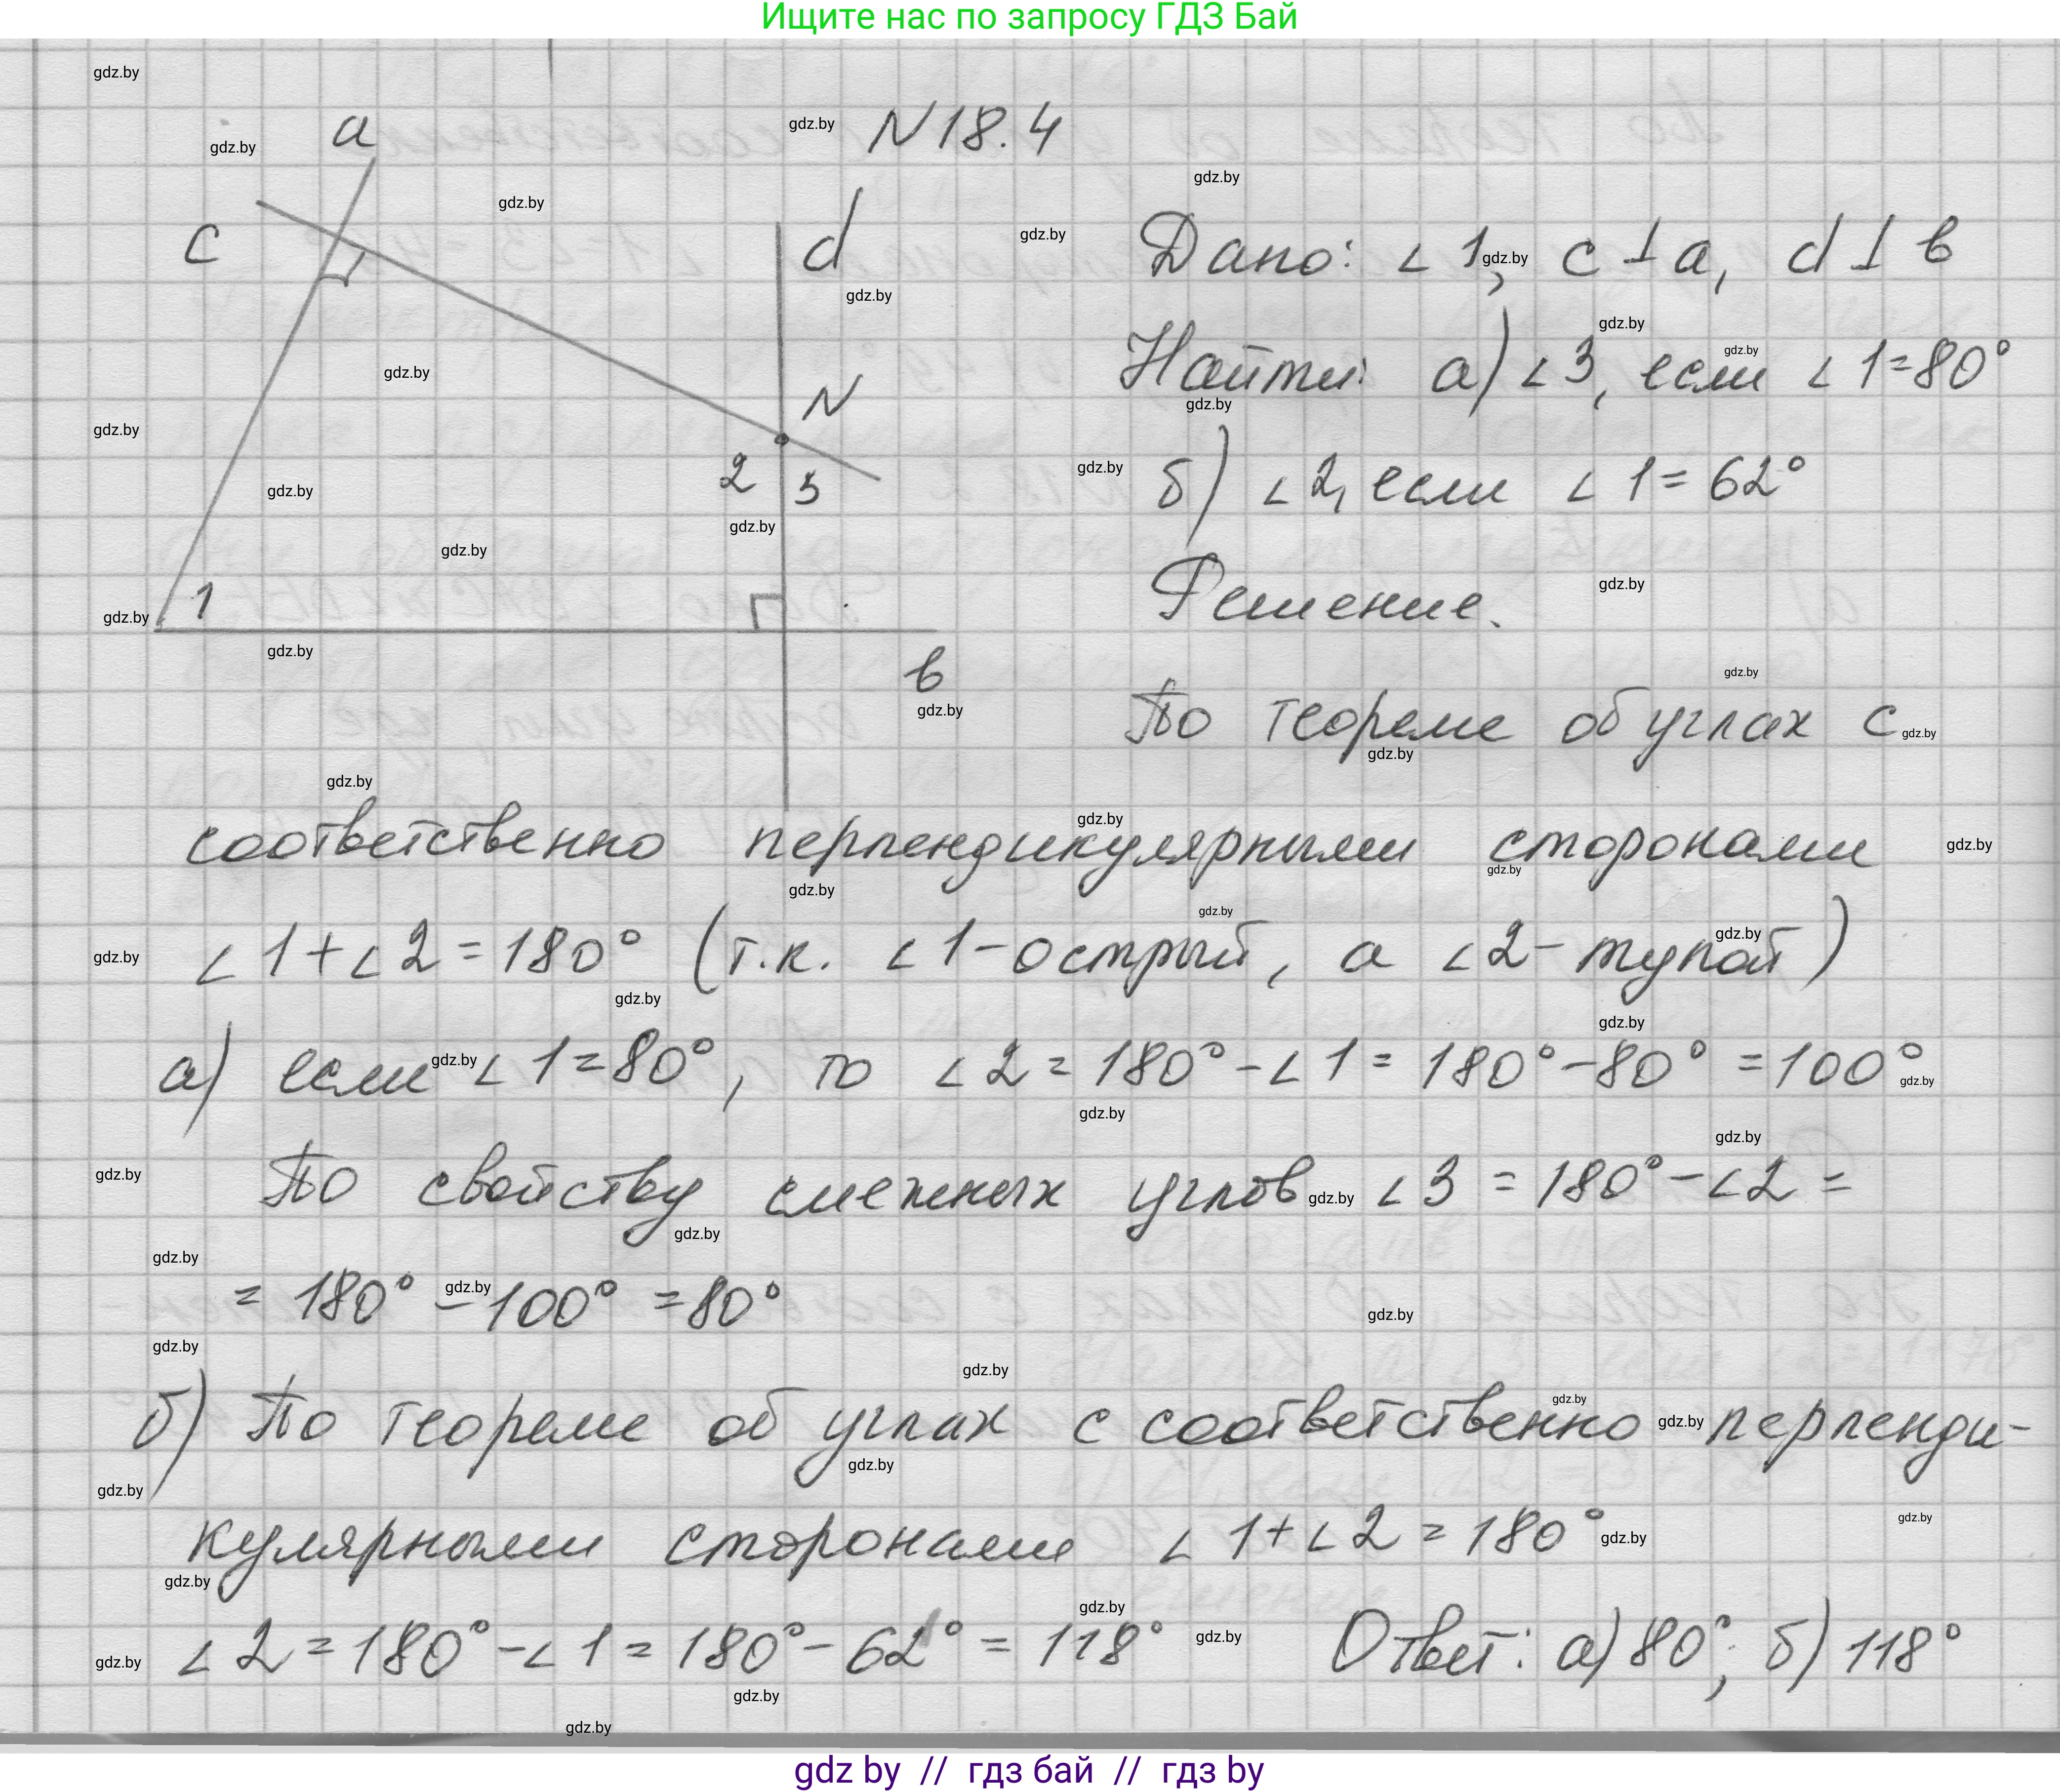 Ищите нас по запросу ГДЗ Бай
N 18.4
a
c
d
N
2 3
1
в
Дано: ∠1, c⊥a, d⊥в
Найти: а) ∠3, если ∠1=80°
б) ∠2, если ∠1=62°
Решение.
По теореме об углах с
соответственно перпендикулярными сторонами
∠1+∠2=180° (т.к. ∠1-острый, а ∠2-тупой)
а) если ∠1=80°, то ∠2=180°-∠1=180°-80°=100°
По свойству смежных углов ∠3=180°-∠2=
=180°-100°=80°
б) По теореме об углах с соответственно перпенди-
кулярными сторонами ∠1+∠2=180°
∠2=180°-∠1=180°-62°=118° Ответ: а) 80°; б) 118°
gdz.by
gdz by // гдз бай // гдз by